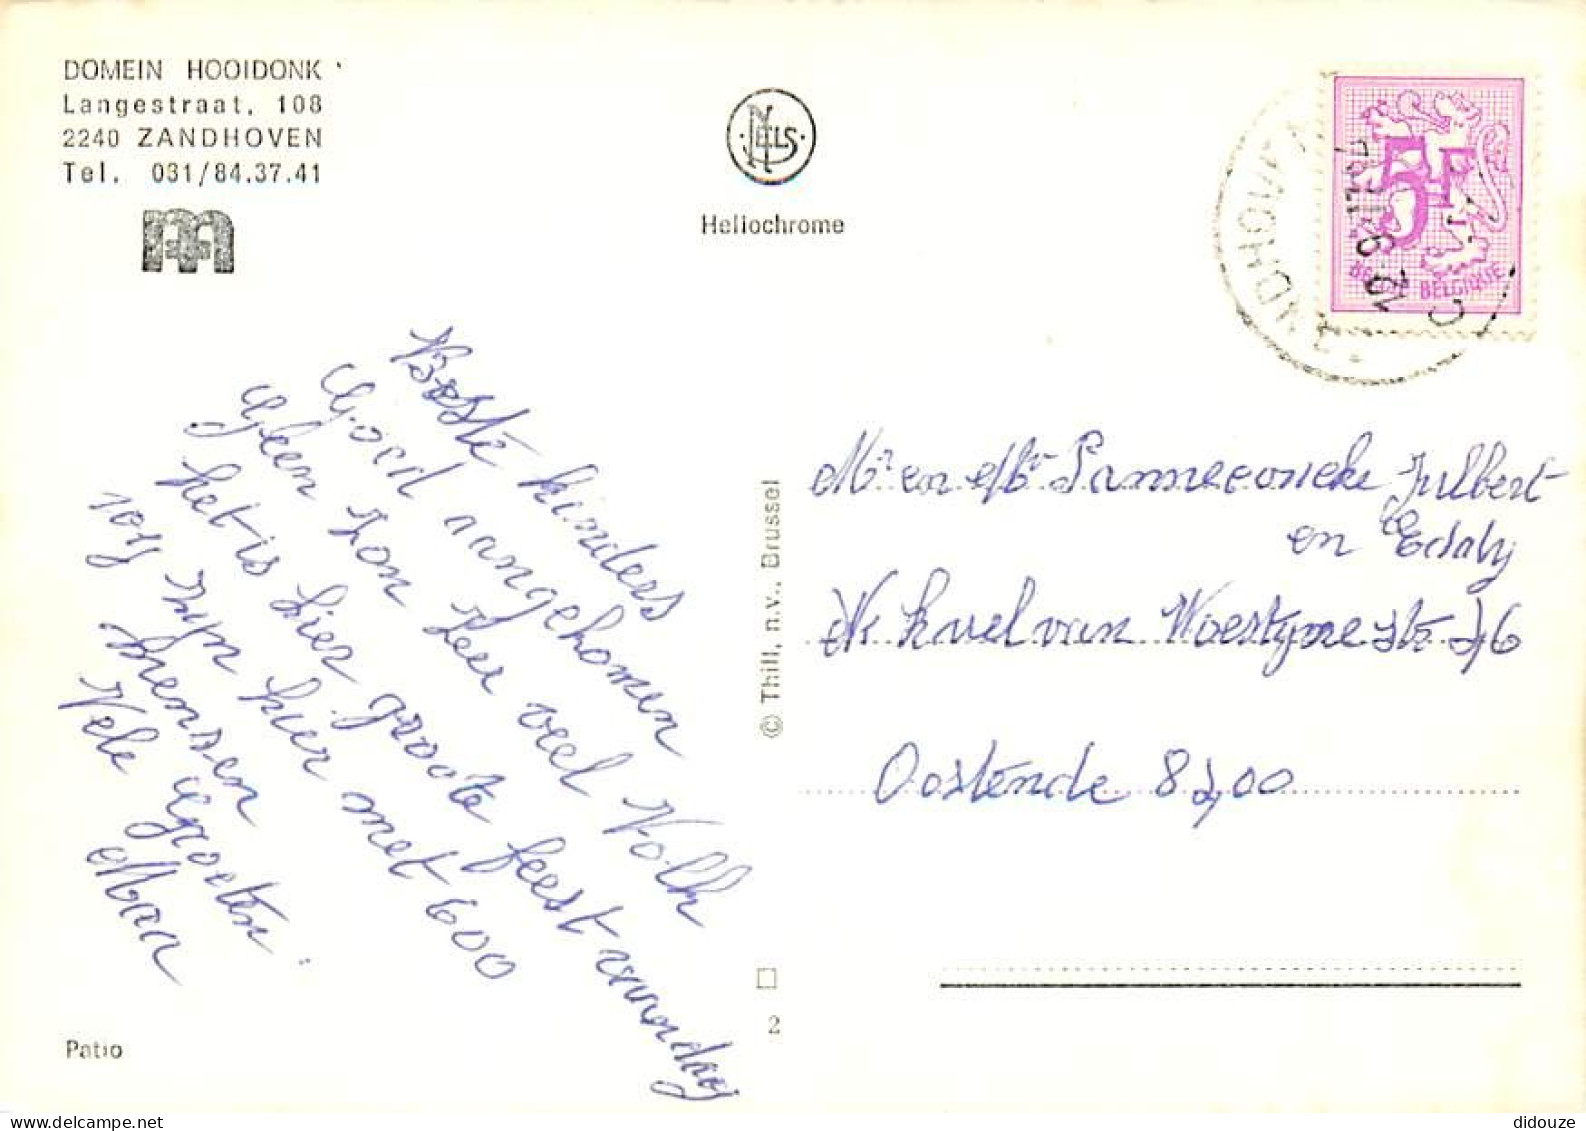 DOMEIN HOOIDONK
Langestraat, 108
2240 ZANDHOVEN
Tel. 031/84.37.41
NELS
Heliochrome
5F
BELGIE BELGIQUE
Beste kinders
Goed aangekomen
Geen zon zeer veel Volk
het is hier groote feest vandag
wy zyn hier met 600
mensen
Vele Groeten.
Maa
© Thill, n.v., Brussel
Mr en Julbert
en
Karel van Woestyne str 76
Oostende 8400
2
Patio
didouze